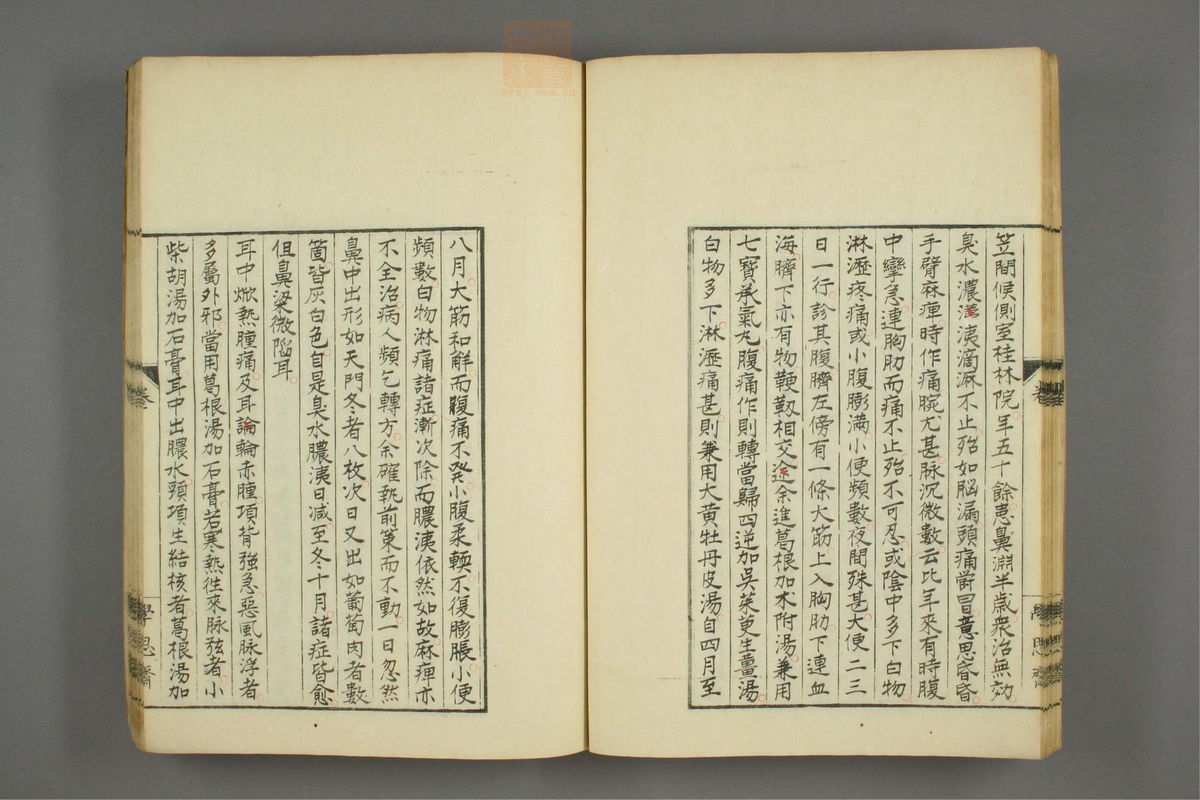 笠間候側室桂林院年五十餘患鼻淵半歳衆治無効
臭水濃洟滴瀝不止殆如脳漏頭痛欝冒意思昏昏
手臂麻痺時作痛腕尤甚脉沉微數云比年來有時腹
中攣急連胸肋而痛不止殆不可忍或陰中多下白物
淋瀝疼痛或小腹膨満小便頻數夜間殊甚大便二三
日一行診其腹臍左傍有一條大筋上入胸肋下連血
海臍下亦有物鞕靱相交余進葛根加朮附湯兼用
七寶承氣丸腹痛作則轉當歸四逆加吳茱萸生薑湯
白物多下淋瀝痛甚則兼用大黃牡丹皮湯自四月至
八月大筋和解而腹痛不發小腹柔輭不復膨脹小便
頻數白物淋痛諸症漸次除而膿洟依然如故麻痺亦
不全治病人頻乞轉方余確執前策而不動一日忽然
鼻中出形如天門冬者八枚次日又出如葡萄肉者數
箇皆灰白色自是臭水膿洟日减至冬十月諸症皆愈
但鼻梁微陷耳
耳中焮熱腫痛及耳輪赤腫項背強急惡風脉浮者
多屬外邪當用葛根湯加石膏若寒熱徃來脉弦者小
柴胡湯加石膏耳中出膿水頸項生結核者葛根湯加
卷
學思齋